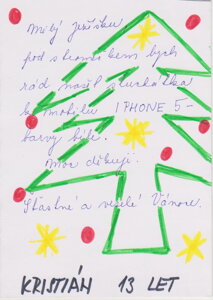 Milý ježíšku
pod stromečkem bych
rád našel sluchátka
k mobilu IPHONE 5 -
barvy bílé.
Moc děkuji.
Šťastné a veselé Vánoce.
KRISTIÁN 13 LET